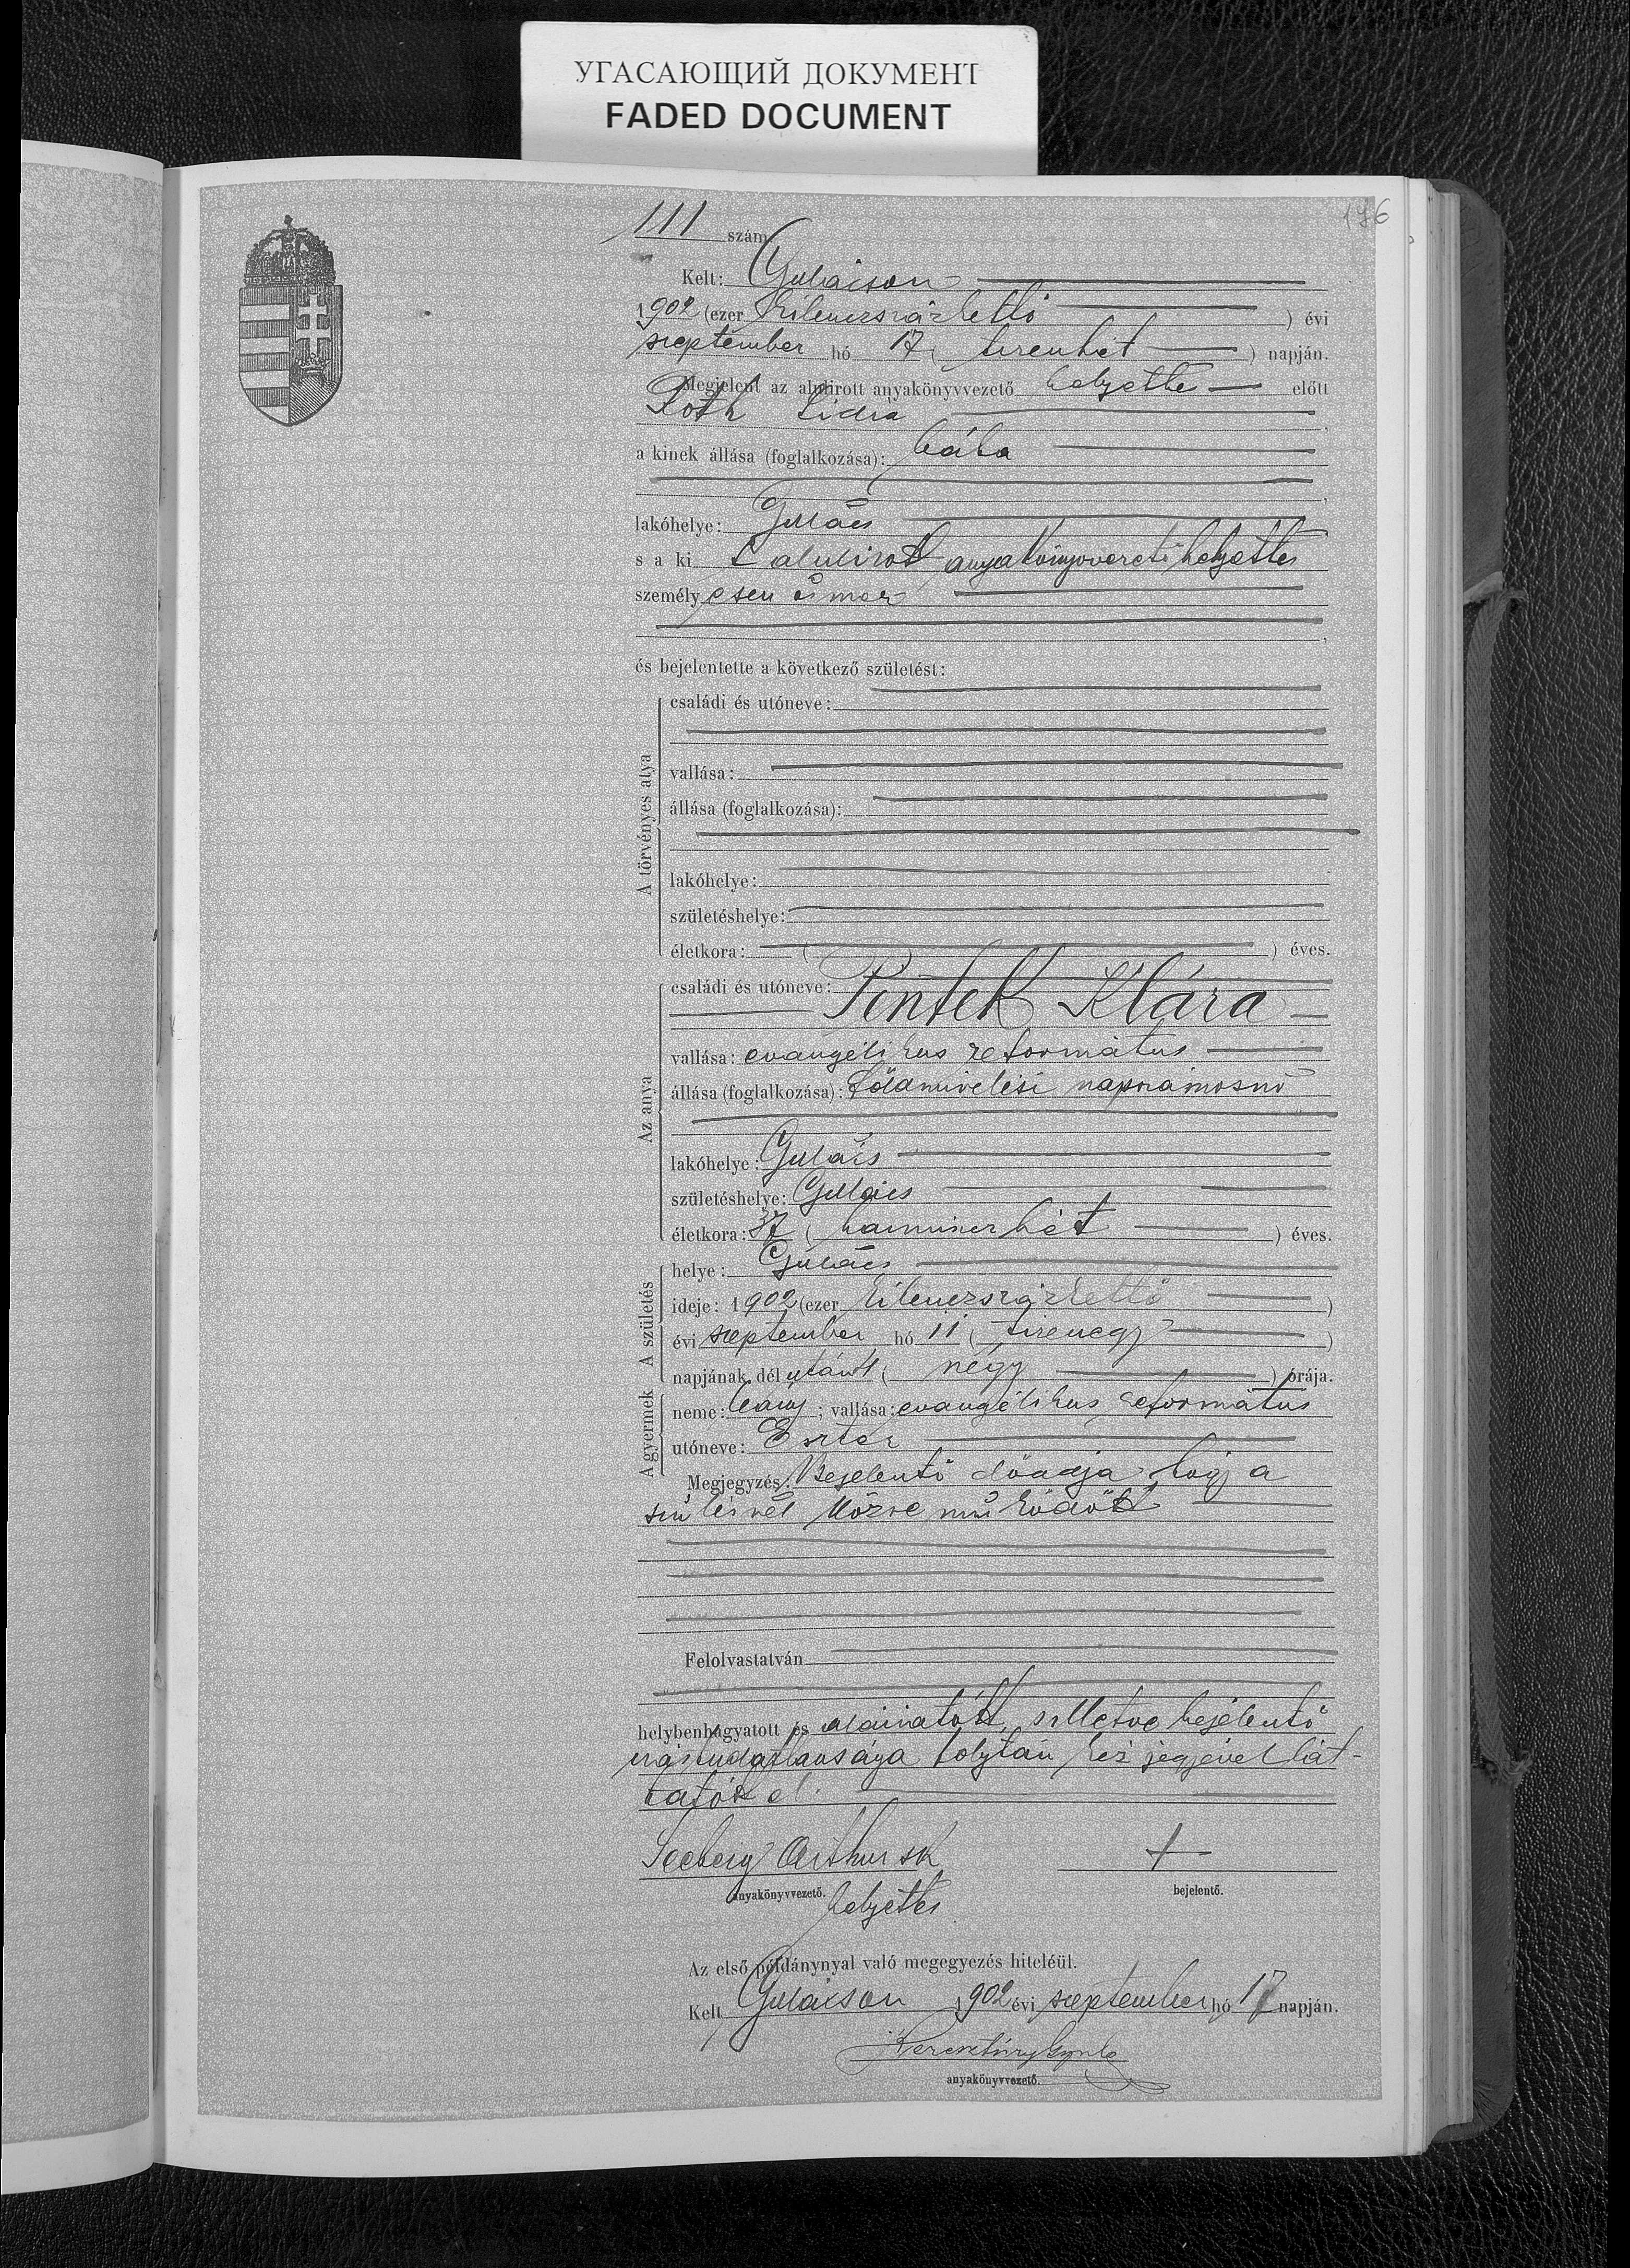 УГАСАЮЩИЙ ДОКУМЕНТ
FADED DOCUMENT
176
111 szám
Kelt: Gulácson
1902 (ezer kilenczszázkettő) évi
szeptember hó 17 (tizenhét) napján.
Megjelent az alulirott anyakönyvvezető helyettes előtt
Róth Lidia
a kinek állása (foglalkozása): bába
lakóhelye: Gulács
s a ki t alulirott anyakönyvvezető helyettes
személy esen ismer
és bejelentette a következő születést:
A törvényes atya
családi és utóneve:
vallása:
állása (foglalkozása):
lakóhelye:
születéshelye:
életkora: ( ) éves.
Az anya
családi és utóneve:
Péntek Klára
vallása: evangélikus református
állása (foglalkozása): földmívelési napszámosnő
lakóhelye: Gulács
születéshelye: Gulács
életkora: 37 (harminczhét) éves.
A születés
helye: Gulács
ideje: 1902 (ezer kilenczszázkettő)
évi szeptember hó 11 (tizenegy)
napjának dél utánt (négy) órája.
A gyermek
neme: leány; vallása: evangélikus református
utóneve: Eszter
Megjegyzés: Bejelentő előadja hogy a
szülésnél közre működött
Felolvastatván
helybenhagyatott és aláiratott, illetve bejelentő
irástudatlansága folytán kézjegyével lát-
tatott el.
Seeberg Arthur sk +
anyakönyvvezető. bejelentő.
helyettes
Az első példánynyal való megegyezés hiteléül.
Kelt Gulácson 1902 évi szeptember hó 17 napján.
Keresztúry Gyula
anyakönyvvezető.